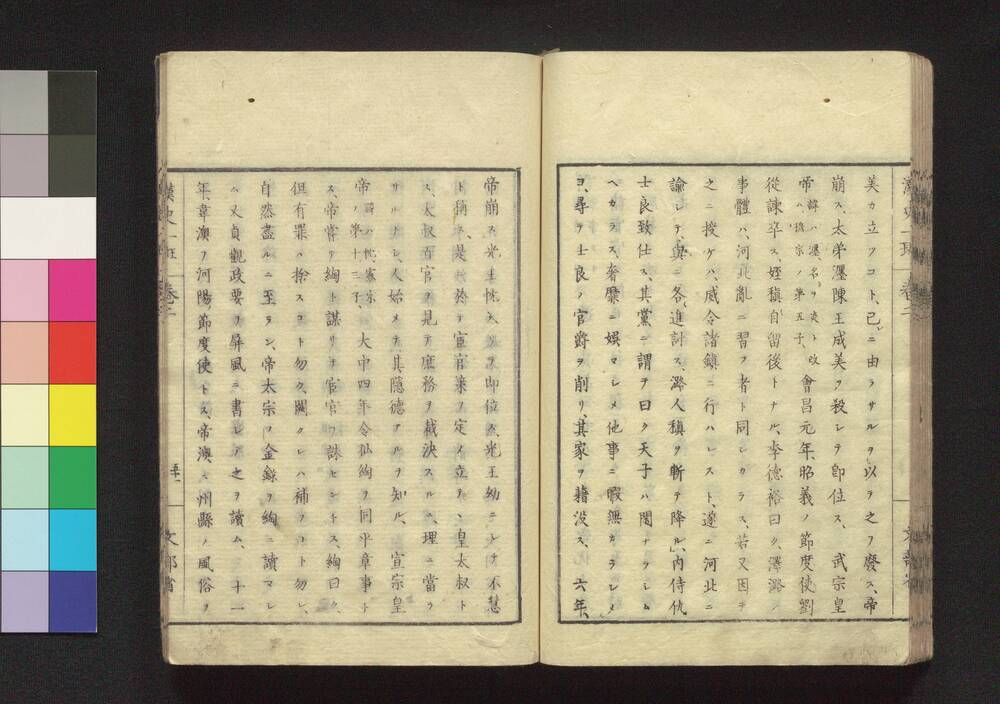 美カ立フコト、己ニ由ラサルヲ以テ之ヲ廢ス、帝
崩ス、太弟瀍陳王成美ヲ殺シテ即位ス、 武宗皇
帝諱ハ瀍、名ヲ炎ト改
ハ、穆宗ノ第五子、會昌元年、昭義ノ節度使劉
從諫卒ス、姪稹自留後トナル、李德裕曰ク、澤潞ノ
事體ハ、河北亂ニ習フ者ト同シカラス、若又因テ
之ニ授ケハ、威令諸鎮ニ行ハレスト、遂ニ河北ニ
諭シテ、與ニ各、進討ス、潞人稹ヲ斬テ降ル、内侍仇
士良致仕ス、其黨ニ謂テ曰ク天子ハ閑ナラシム
ヘカラス、奢靡ニ娯マシメ他事ニ暇無カラシメ
ヨ、尋テ士良ノ官爵ヲ削リ、其家ヲ籍没ス、 六年、
帝崩ス光王忱即位ス、光王幼ニシテ不慧
ト稱ス、是ニ於テ宦官策ヲ定メ立テ、皇太叔ト
ス、太叔百官ヲ見テ庶務ヲ裁決スルニ、理ニ當ラ
サルナシ、人始メテ其隱德アルヲ知ル、 宣宗皇
帝諱ハ忱、憲宗
ノ第十三子、大中四年令狐綯ヲ同平章事ト
ス、帝嘗テ綯ト謀リテ宦官ヲ誅セントス、綯曰ク、
但有罪ハ捨スコト勿ク、闕クレハ補フコト勿レ、
自然盡ルニ至ラン、帝太宗ノ金錄ヲ綯ニ讀マシ
ム又貞觀政要ヲ屏風ニ書シテ之ヲ讀ム、 十一
年、韋澳ヲ河陽節度使トス、帝澳ニ州縣ノ風俗ヲ
漢史一班 卷二
五十一
文部省